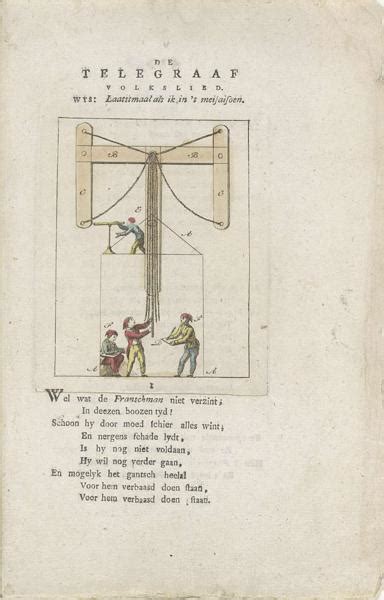 DE
TELEGRAAF
VOLKSLIED.
WYS: Laatstmaal als ik in 't meisaisoen.
B B
C C
E
A
A A
1
Wel wat de Franschman niet verzint;
In deezen boozen tyd!
Schoon hy door moed schier alles wint;
En nergens schade lydt,
Is hy nog niet voldaan,
Hy wil nog verder gaan,
En mogelyk het gantsch heelal
Voor hem verbaasd doen staan,
Voor hem verbaasd doen staan.